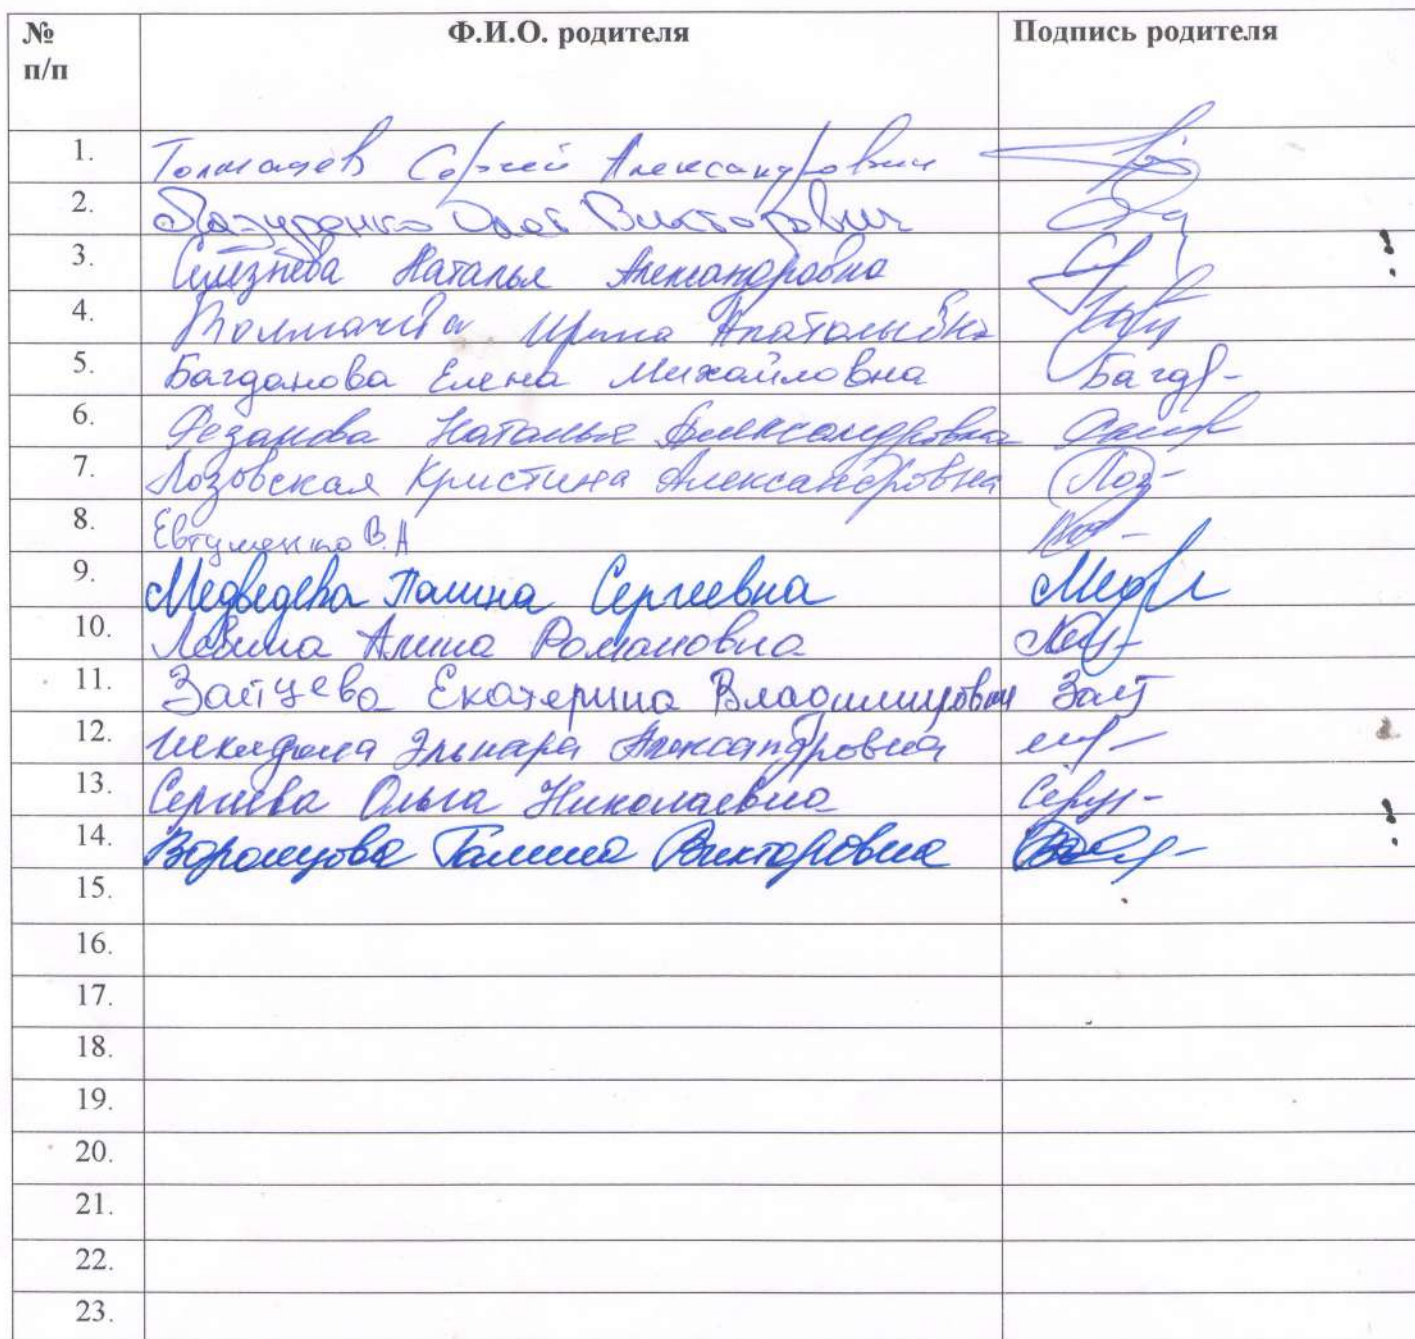 № п/п Ф.И.О. родителя Подпись родителя
1. Толмачев Сергей Александрович
2. Олег Викторович
3. Селезнева Наталья Александровна
4. Толмачева Ирина Анатольевна
5. Багданова Елена Михайловна Багд-
6. Резанова Наталья Александровна
7. Лозовская Кристина Александровна Лоз-
8. Евтушенко В.А
9. Медведева Галина Сергеевна Медв
10. Левина Алина Романовна
11. Зайцева Екатерина Владимировна Зайт
12. Эльнара Александровна
13. Сергеева Ольга Николаевна
14. Галина Викторовна
15.
16.
17.
18.
19.
20.
21.
22.
23.